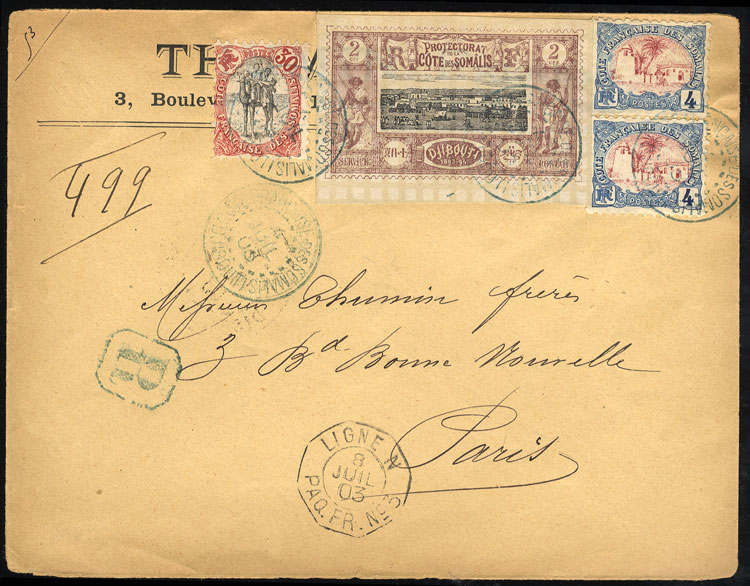 53
TH
3, Boulev
30
POSTES
CÔTE FRANÇAISE DES SOMALIS
2
2
R F
PROTECTORAT
DE LA
CÔTE DES SOMALIS
DJIBOUTI
1893-94
CÔTE FRANÇAISE DES SOMALIS
RF POSTES 4
CÔTE FRANÇAISE DES SOMALIS
RF POSTES 4
499
JUIL
03
Messieurs Thumin frères
3 Bd Bonne Nouvelle
Paris
R
LIGNE N
8
JUIL
03
PAQ. FR. No 3